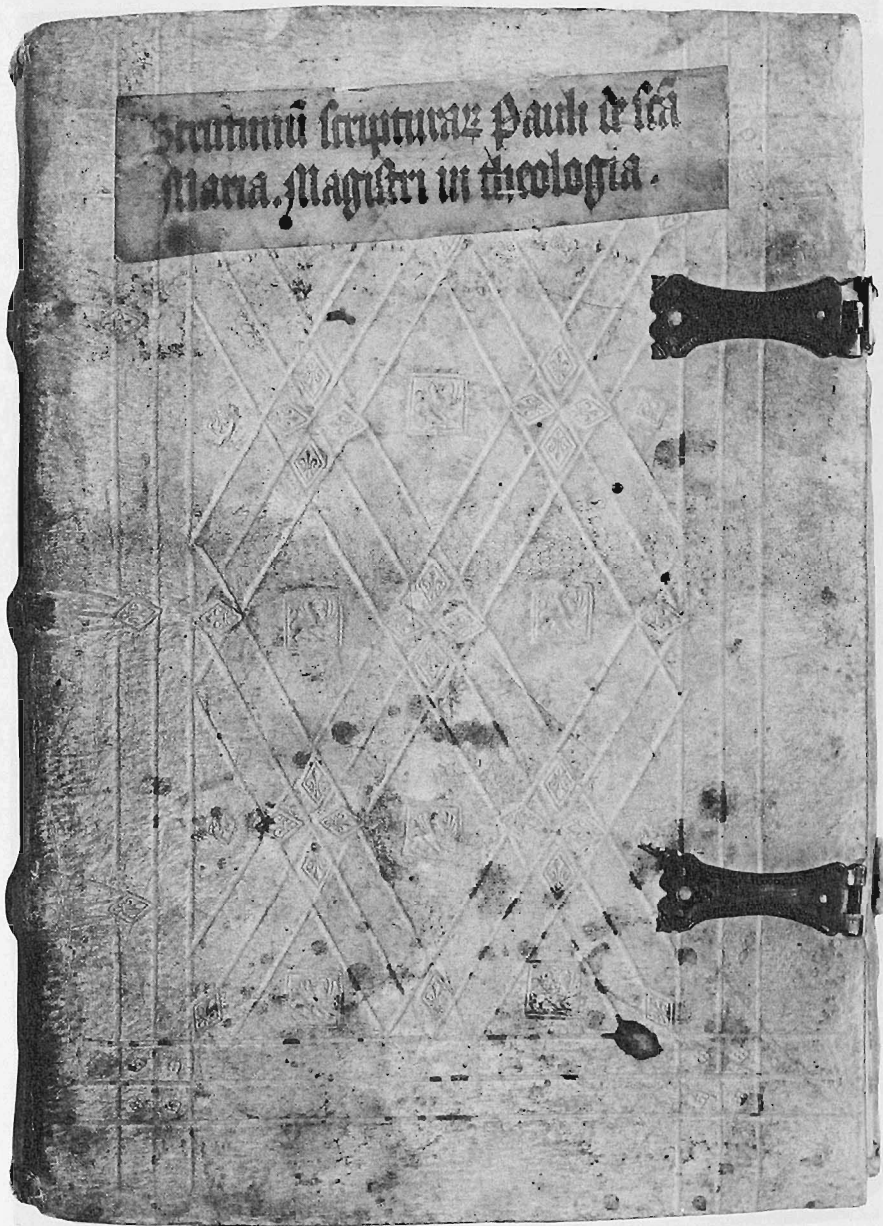 Scrutiniū scripturaꝝ Pauli de scā
Maria. Magistri in theologia.